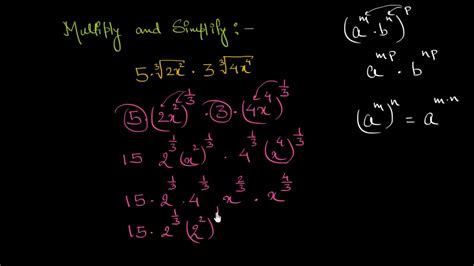 Multiply and Simplify:-
5·∛(2x²) · 3∛(4x⁴)
5·(2x²)^(1/3) · 3·(4x⁴)^(1/3)
15 2^(1/3)(x²)^(1/3) · 4^(1/3)(x⁴)^(1/3)
15·2^(1/3)·4^(1/3) x^(2/3) · x^(4/3)
15·2^(1/3)(2²)^1
(a^m·b^n)^p
a^(mp) · b^(np)
(a^m)^n = a^(m·n)